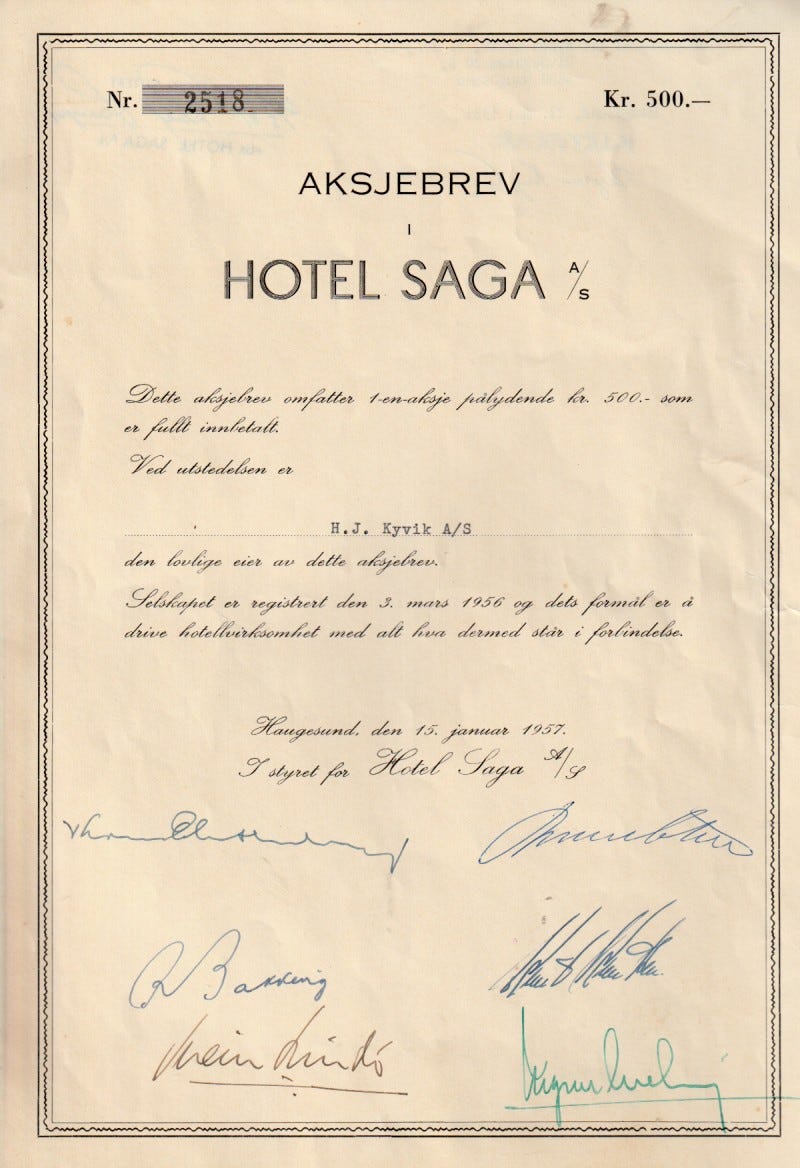 Nr. 2518 Kr. 500.—
AKSJEBREV
I
HOTEL SAGA A/S
Dette aksjebrev omfatter 1-en-aksje pålydende kr. 500.- som
er fullt innbetalt.
Ved utstedelsen er
H.J. Kyvik A/S
den lovlige eier av dette aksjebrev.
Selskapet er registrert den 3. mars 1956 og dets formål er å
drive hotellvirksomhet med alt hva dermed står i forbindelse.
Haugesund, den 15. januar 1957.
I styret for Hotel Saga A/S